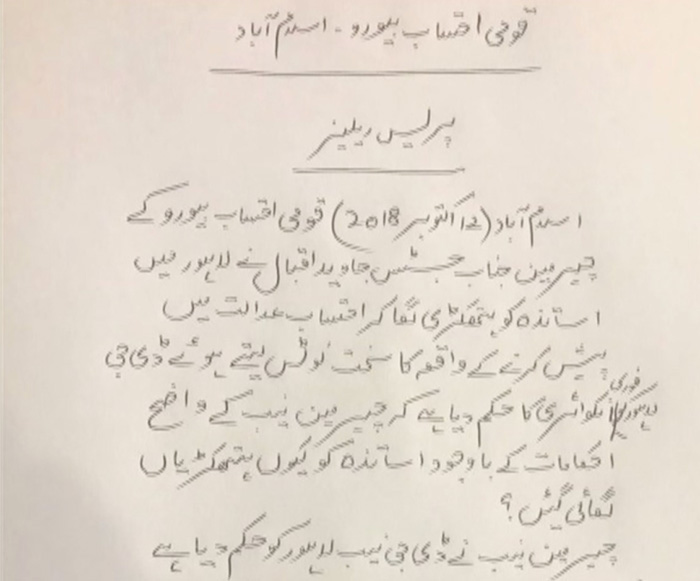 قومی احتساب بیورو - اسلام آباد
پریس ریلیز
اسلام آباد (12 اکتوبر 2018) قومی احتساب بیورو کے
چیرمین جناب جسٹس جاوید اقبال نے لاہور میں
اساتذہ کو ہتھکڑی لگا کر احتساب عدالت میں
پیش کرنے کے واقعہ کا سخت نوٹس لیتے ہوئے ڈی جی
لاہور کو فوری انکوائری کا حکم دیا ہے کہ چیرمین نیب کے واضح
احکامات کے باوجود اساتذہ کو کیوں ہتھکڑیاں
لگائی گئیں؟
چیرمین نیب نے ڈی جی نیب لاہور کو حکم دیا ہے